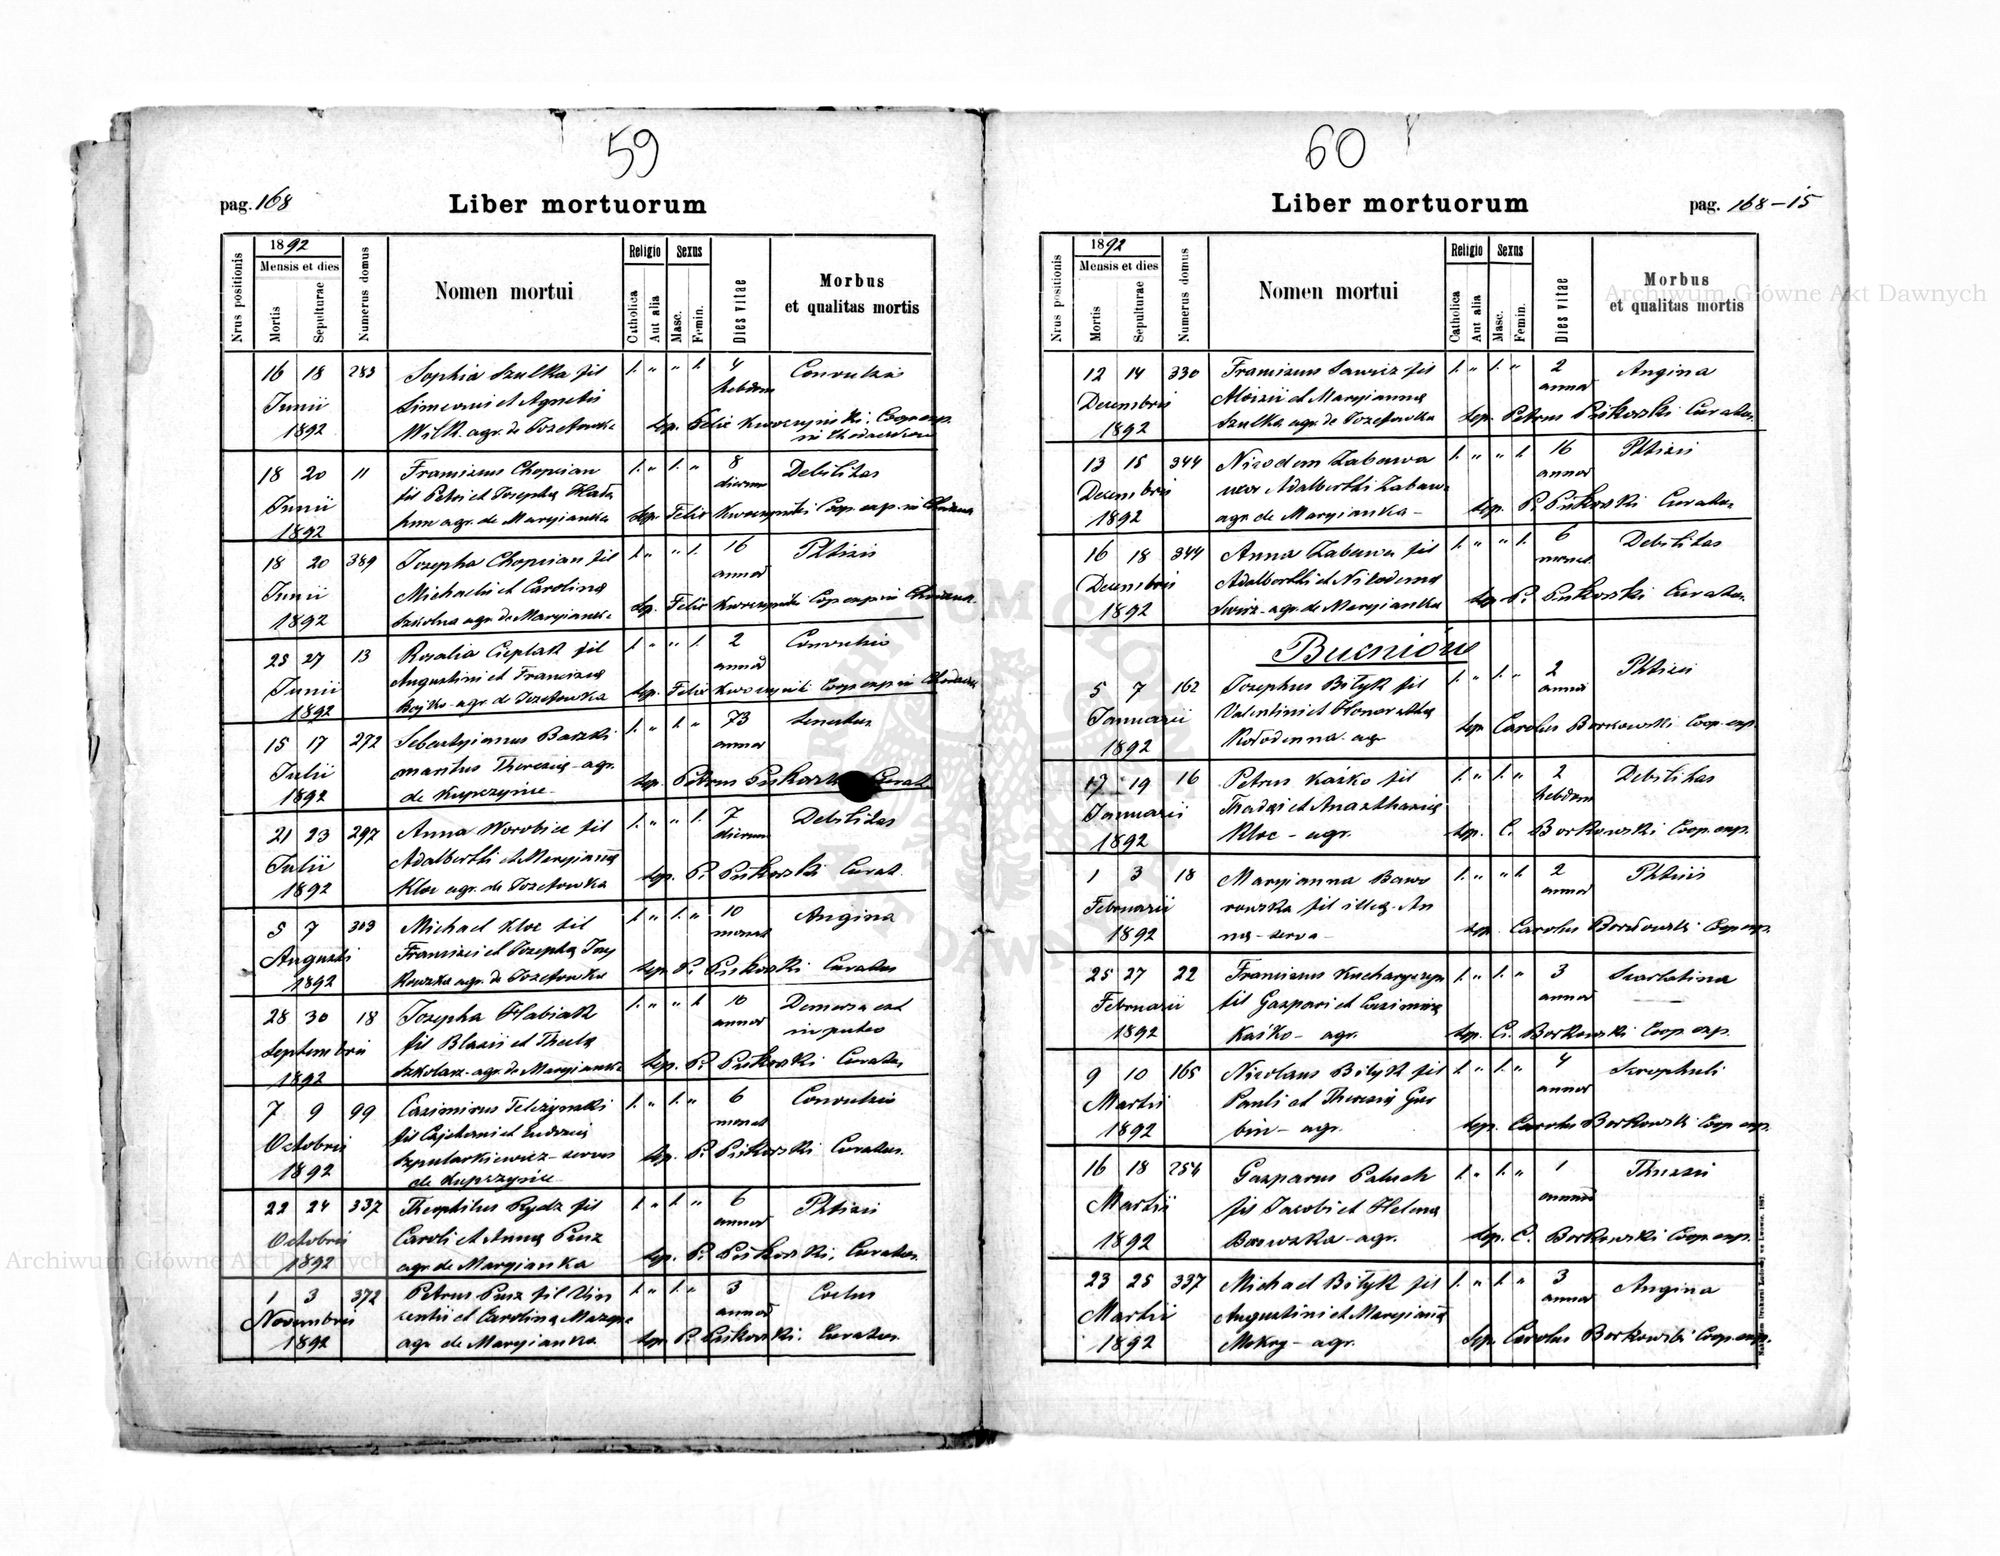 59
pag. 168
Liber mortuorum
Nrus positionis
1892
Mensis et dies
Mortis
Sepulturae
Numerus domus
Nomen mortui
Religio
Catholica
Aut alia
Sexus
Masc.
Femin.
Dies vitae
Morbus
et qualitas mortis
16 18 283 Sophia Szulka fil 1. „ „ 1. 4 Convulsis
Junii Simeonis et Agnetis hebdom
1892 Wilk. agr. de Jozefowka Sep. Felix Kwoczynski Coop. exp.
18 20 11 Franciscus Chopcian 1. „ 1. „ 8 Debilitas
Junii fil Petri et Josepha dierum
1892 agr. de Maryianka Sep. Felix Coop. exp. in
18 20 389 Josepha Chopcian fil 1. „ „ 1. 16 Phtisis
Junii Michaelis et Carolina annor
1892 Szkolna agr. de Maryianka Sep. Felix Coop exp in
25 27 13 Rosalia Cieplak fil 1. „ „ 1. 2 Convulsio
Junii Augustini et Francisca annor
1892 Bojko - agr. de Jozefowka Sep. Felix Coop exp in
15 17 272 Sebastyianus Barski 1. „ 1. „ 73 Senectus
Julii maritus Theresia - agr. annor
1892 de Kupczynie Sep. Petrus Curat.
21 23 297 Anna Worobiec fil 1. „ „ 1. 7 Debilitas
Julii Adalberti et Maryianna dierum
1892 Kloc agr. de Jozefowka Sep. P. Curat.
5 7 303 Michael Kloc fil 1. „ 1. „ 10 Angina
Augusti Francisci et Josepha mens
1892 agr. de Jozefowka Sep. P. Curatus
28 30 18 Josepha Habiak 1. „ „ 1 10 Demersa est
Septembris fil Blasii et Thecla annor in puteo
1892 Szkolarz - agr. de Maryianka Sep. P. Curatus
7 9 99 Casimirus Telczynski 1. „ 1. „ 6 Convulsio
Octobris fil Cajetani et Eudoxia mens
1892 Szpularkiewicz - servus Sep. P. Curatus.
de Kupczynie
22 24 337 Theophilus Rydz fil 1. „ 1. „ 6 Phtisis
Octobris Caroli et Anna Pusz annor
1892 agr. de Maryianka Sep. P. Curatus.
1 3 372 Petrus Pusz fil Vin 1. „ 1. „ 3
Novembris centii et Carolina annor
1892 agr. de Maryianka Sep. P. Curatus.
60
Liber mortuorum
pag. 168-15
Nrus positionis
1892
Mensis et dies
Mortis
Sepulturae
Numerus domus
Nomen mortui
Religio
Catholica
Aut alia
Sexus
Masc.
Femin.
Dies vitae
Morbus
et qualitas mortis
12 14 330 Franciscus fil 1. „ 1. „ 2 Angina
Decembris Aloizii et Maryianna annor
1892 Szulka agr. de Jozefowka Sep. Petrus Curatus.
13 15 344 Nicodem Zabawa 1. „ „ 1 16 Phtisis
Decembris uxor Adalberti annor
1892 agr. de Maryianka - Sep. P. Curatus
16 18 344 Anna Zabawa fil 1. „ „ 1. 6 Debilitas
Decembris Adalberti et Nikodema mens.
1892 agr. de Maryianka Sep. P. Curatus.
Bucniów
5 7 162 Josephus Bityk fil 1. „ 1. „ 2 Phtisis
Januarii Valentini et Honoratha annor
1892 Kołodenna - agr Sep Carolus Borkowski Coop. exp.
17 19 16 Petrus Kaśko fil 1. „ 1. „ 2 Debilitas
Januarii Thadei et Anasthasia hebdom
1892 Kloc - agr. Sep. C. Borkowski Coop. exp.
1 3 18 Maryianna Bawo 1. „ „ 1. 2 Phtisis
Februarii rowska fil illeg. An annor
1892 na - serva - Sep. Carolus Borkowski Coop exp.
25 27 22 Franciscus Kucharyszyn 1. „ 1. „ 3 Scarlatina
Februarii fil Gaspari et Casimira annor
1892 Kaśko - agr. Sep. C. Borkowski Coop. exp.
9 10 165 Nicolaus Bityk fil 1. „ 1. „ 4 Scrophuli
Martii Pauli et Theresia Gar annor
1892 bin - agr. Sep. Carolus Borkowski Coop exp.
16 18 254 Gasparus Paluch 1. „ 1. „ 1
Martii fil Jacobi et Helena
1892 agr. Sep. C. Borkowski Coop. exp.
23 25 337 Michael Bityk fil 1. „ 1. „ 3 Angina
Martii Augustini et Maryianna annor
1892 Mokry - agr. Sep. Carolus Borkowski Coop. exp.
Nakładem Drukarni Ludowej we Lwowie. 1887.
Archiwum Główne Akt Dawnych
Archiwum Główne Akt Dawnych
ARCHIWUM GŁÓWNE AKT DAWNYCH